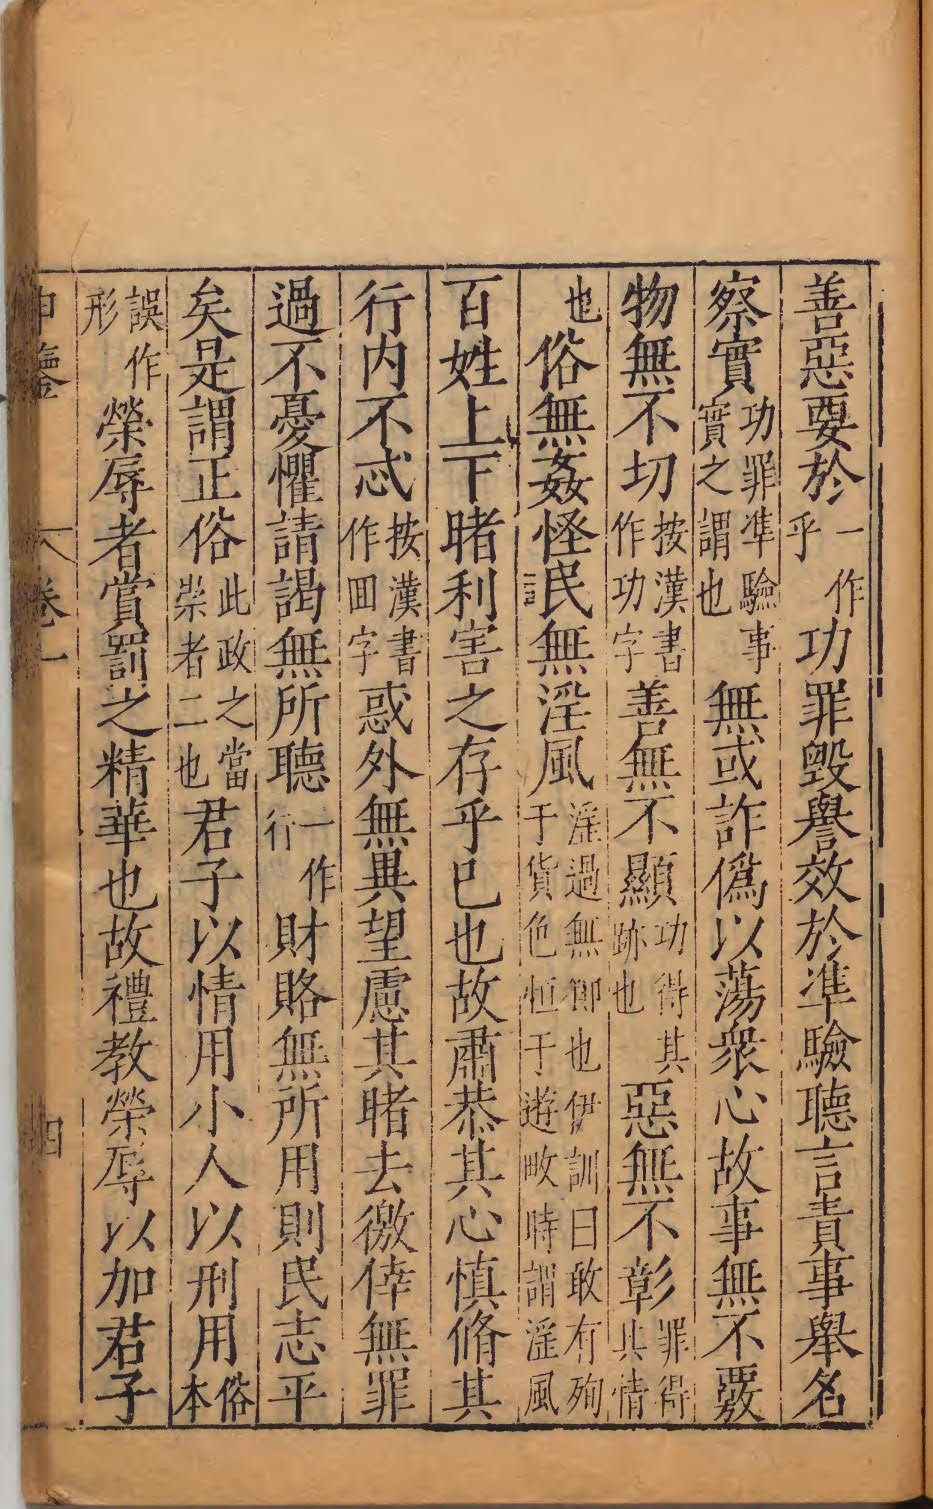 善惡要於一作乎功罪毀譽效於準驗聽言責事舉名
察實功罪準驗事實之謂也無或詐僞以蕩衆心故事無不覈
物無不切按漢書作功字善無不顯功得其跡也惡無不彰罪得其情
也俗無姦怪民無淫風淫過無節也伊訓曰敢有殉于貨色恒于遊畋時謂淫風
百姓上下睹利害之存乎已也故肅恭其心慎脩其
行内不忒按漢書作回字惑外無異望慮其睹去徼倖無罪
過不憂懼請謁無所聽一作行財賂無所用則民志平
矣是謂正俗此政之當崇者二也君子以情用小人以刑用俗本
誤作形榮辱者賞罰之精華也故禮教榮辱以加君子
申鑒 卷一 四